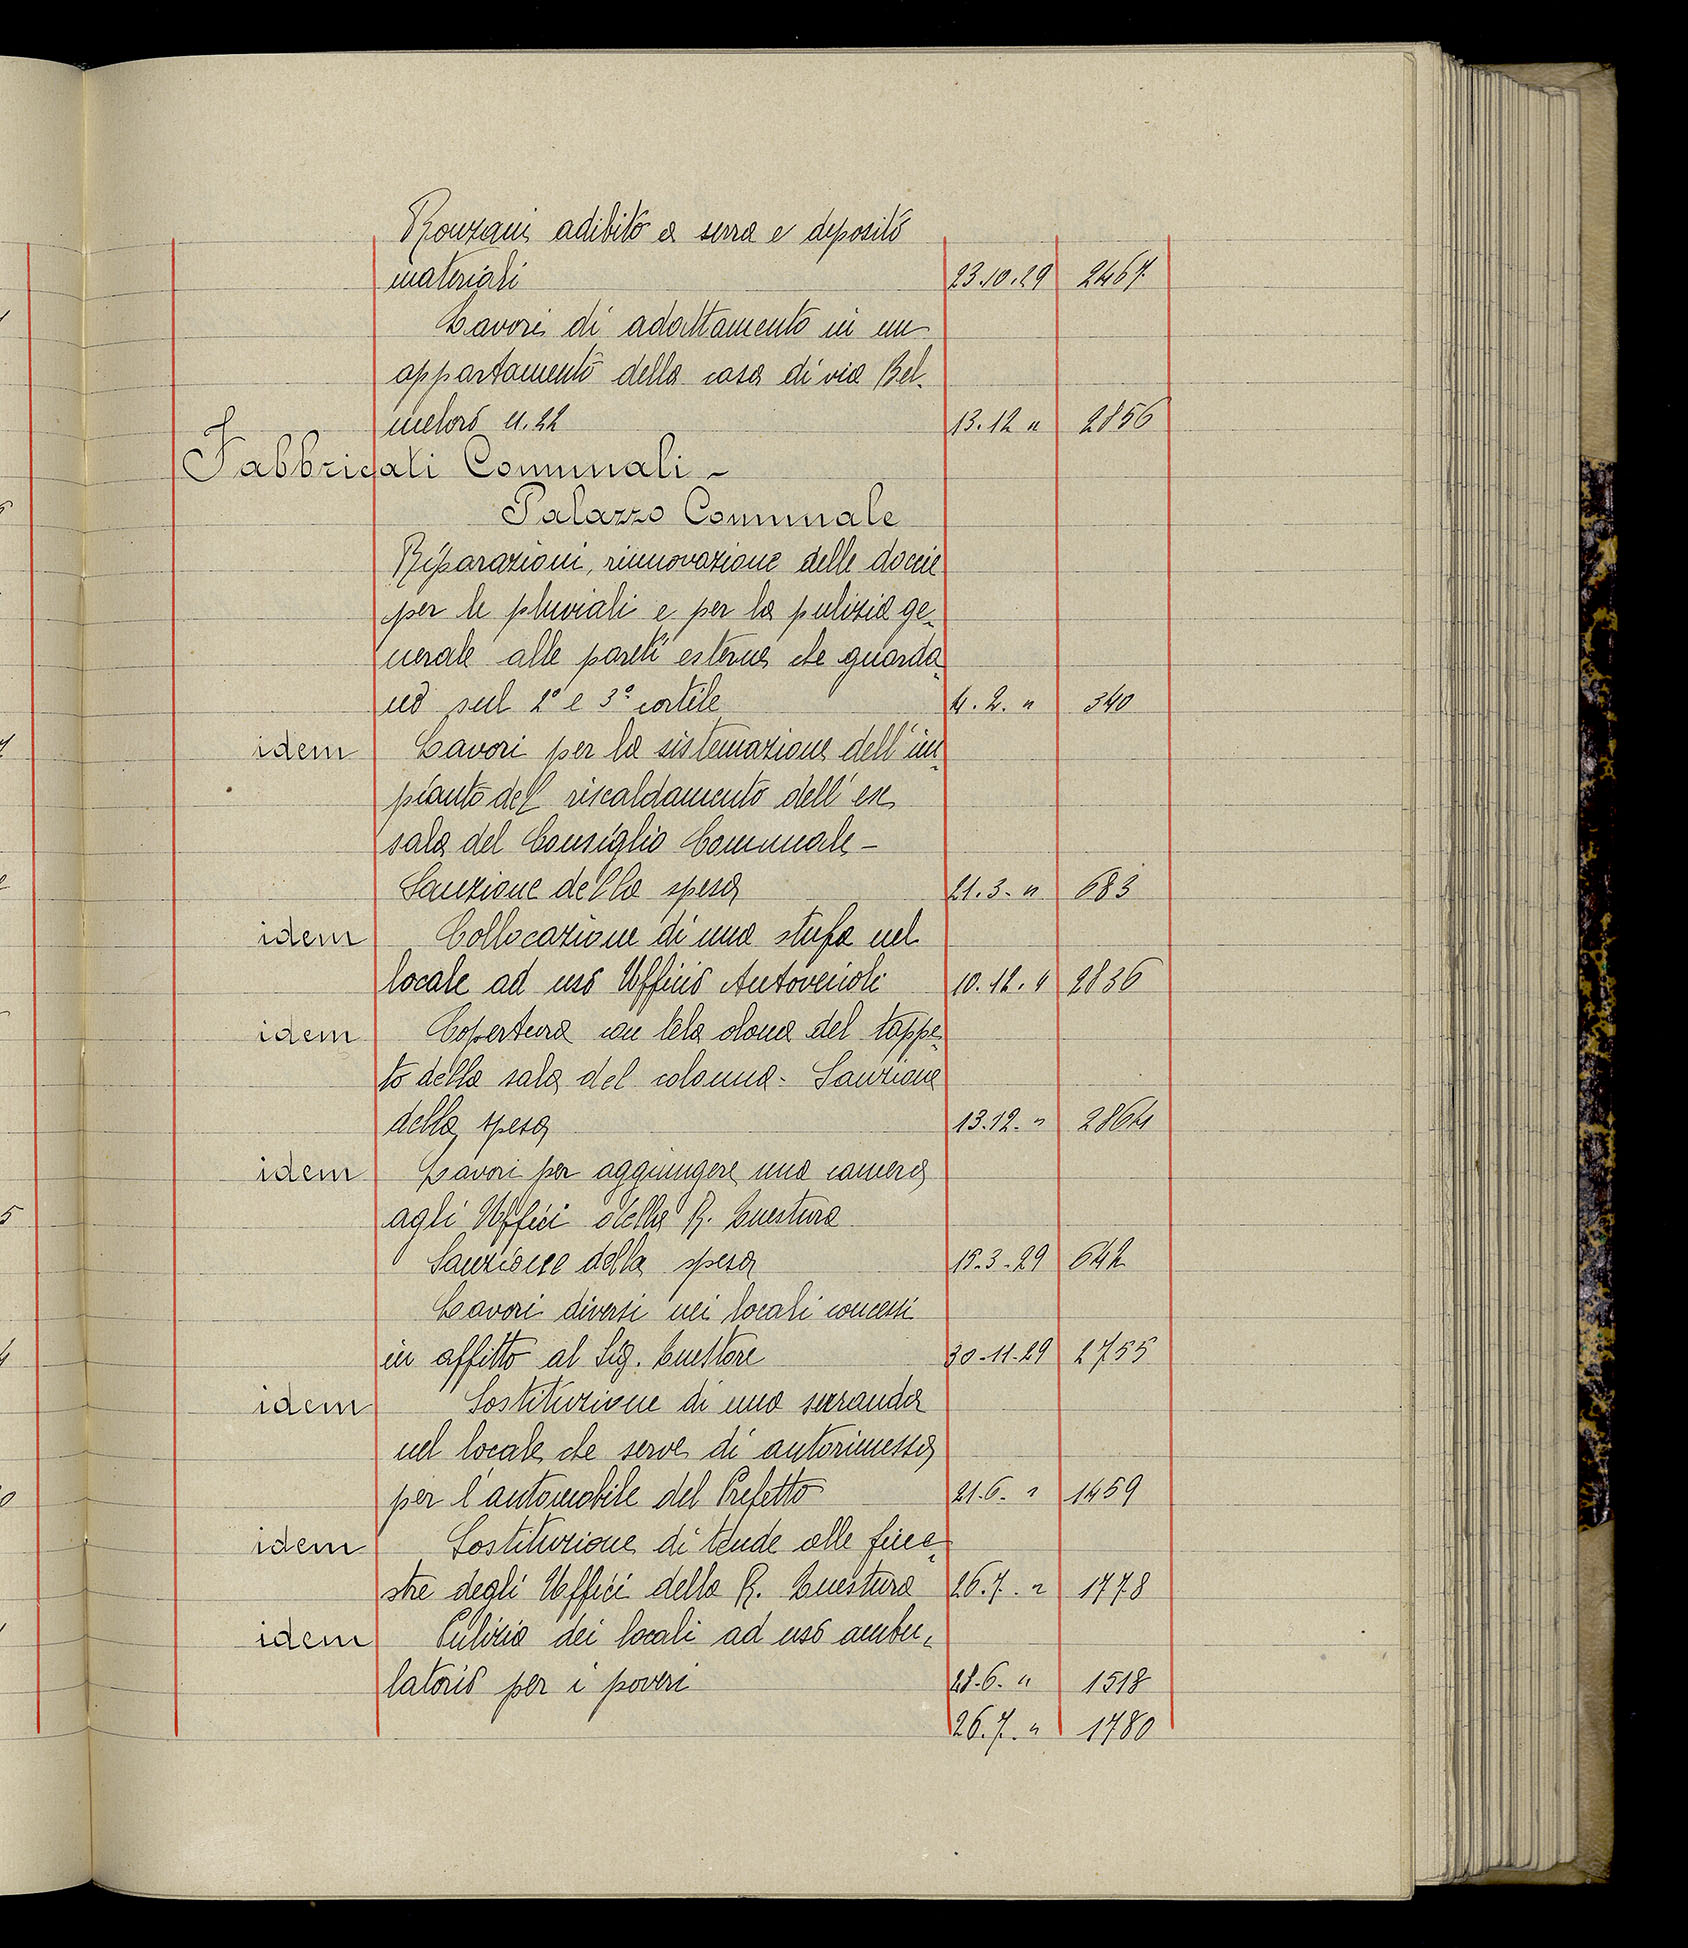 Ronzani adibito a serra e deposito
materiali 23.10.29 2467
Lavori di adattamento in un
appartamento della casa di via Bel-
meloro n. 22 13.12 " 2856
Fabbricati Comunali -
Palazzo Comunale
Riparazioni, rinnovazione delle doccie
per le pluviali e per la pulizia ge-
nerale alle pareti esterne che guarda-
no sul 2º e 3º cortile 4.2. " 340
idem Lavori per la sistemazione dell'im-
pianto del riscaldamento dell'ex
sala del Consiglio Comunale -
Sanzione della spesa 21.3- " 683
idem Collocazione di una stufa nel
locale ad uso Ufficio Autoveicoli 10.12. " 2836
idem Copertura con tela olona del tappe-
to della sala del colonna- Sanzione
della spesa 13.12- " 2864
idem Lavori per aggiungere una camera
agli Uffici della R. Questura
Sanzione della spesa 15-3-29 642
Lavori diversi nei locali concessi
in affitto al Sig. Questore 30-11-29 2755
idem Sostituzione di una serranda
nel locale che serve di autorimessa
per l'automobile del Prefetto 21.6- " 1459
idem Sostituzione di tende alle fine-
stre degli Uffici della R. Questura 26.7. " 1778
idem Pulizia dei locali ad uso ambu-
latorio per i poveri 28-6- " 1518
26.7. " 1780